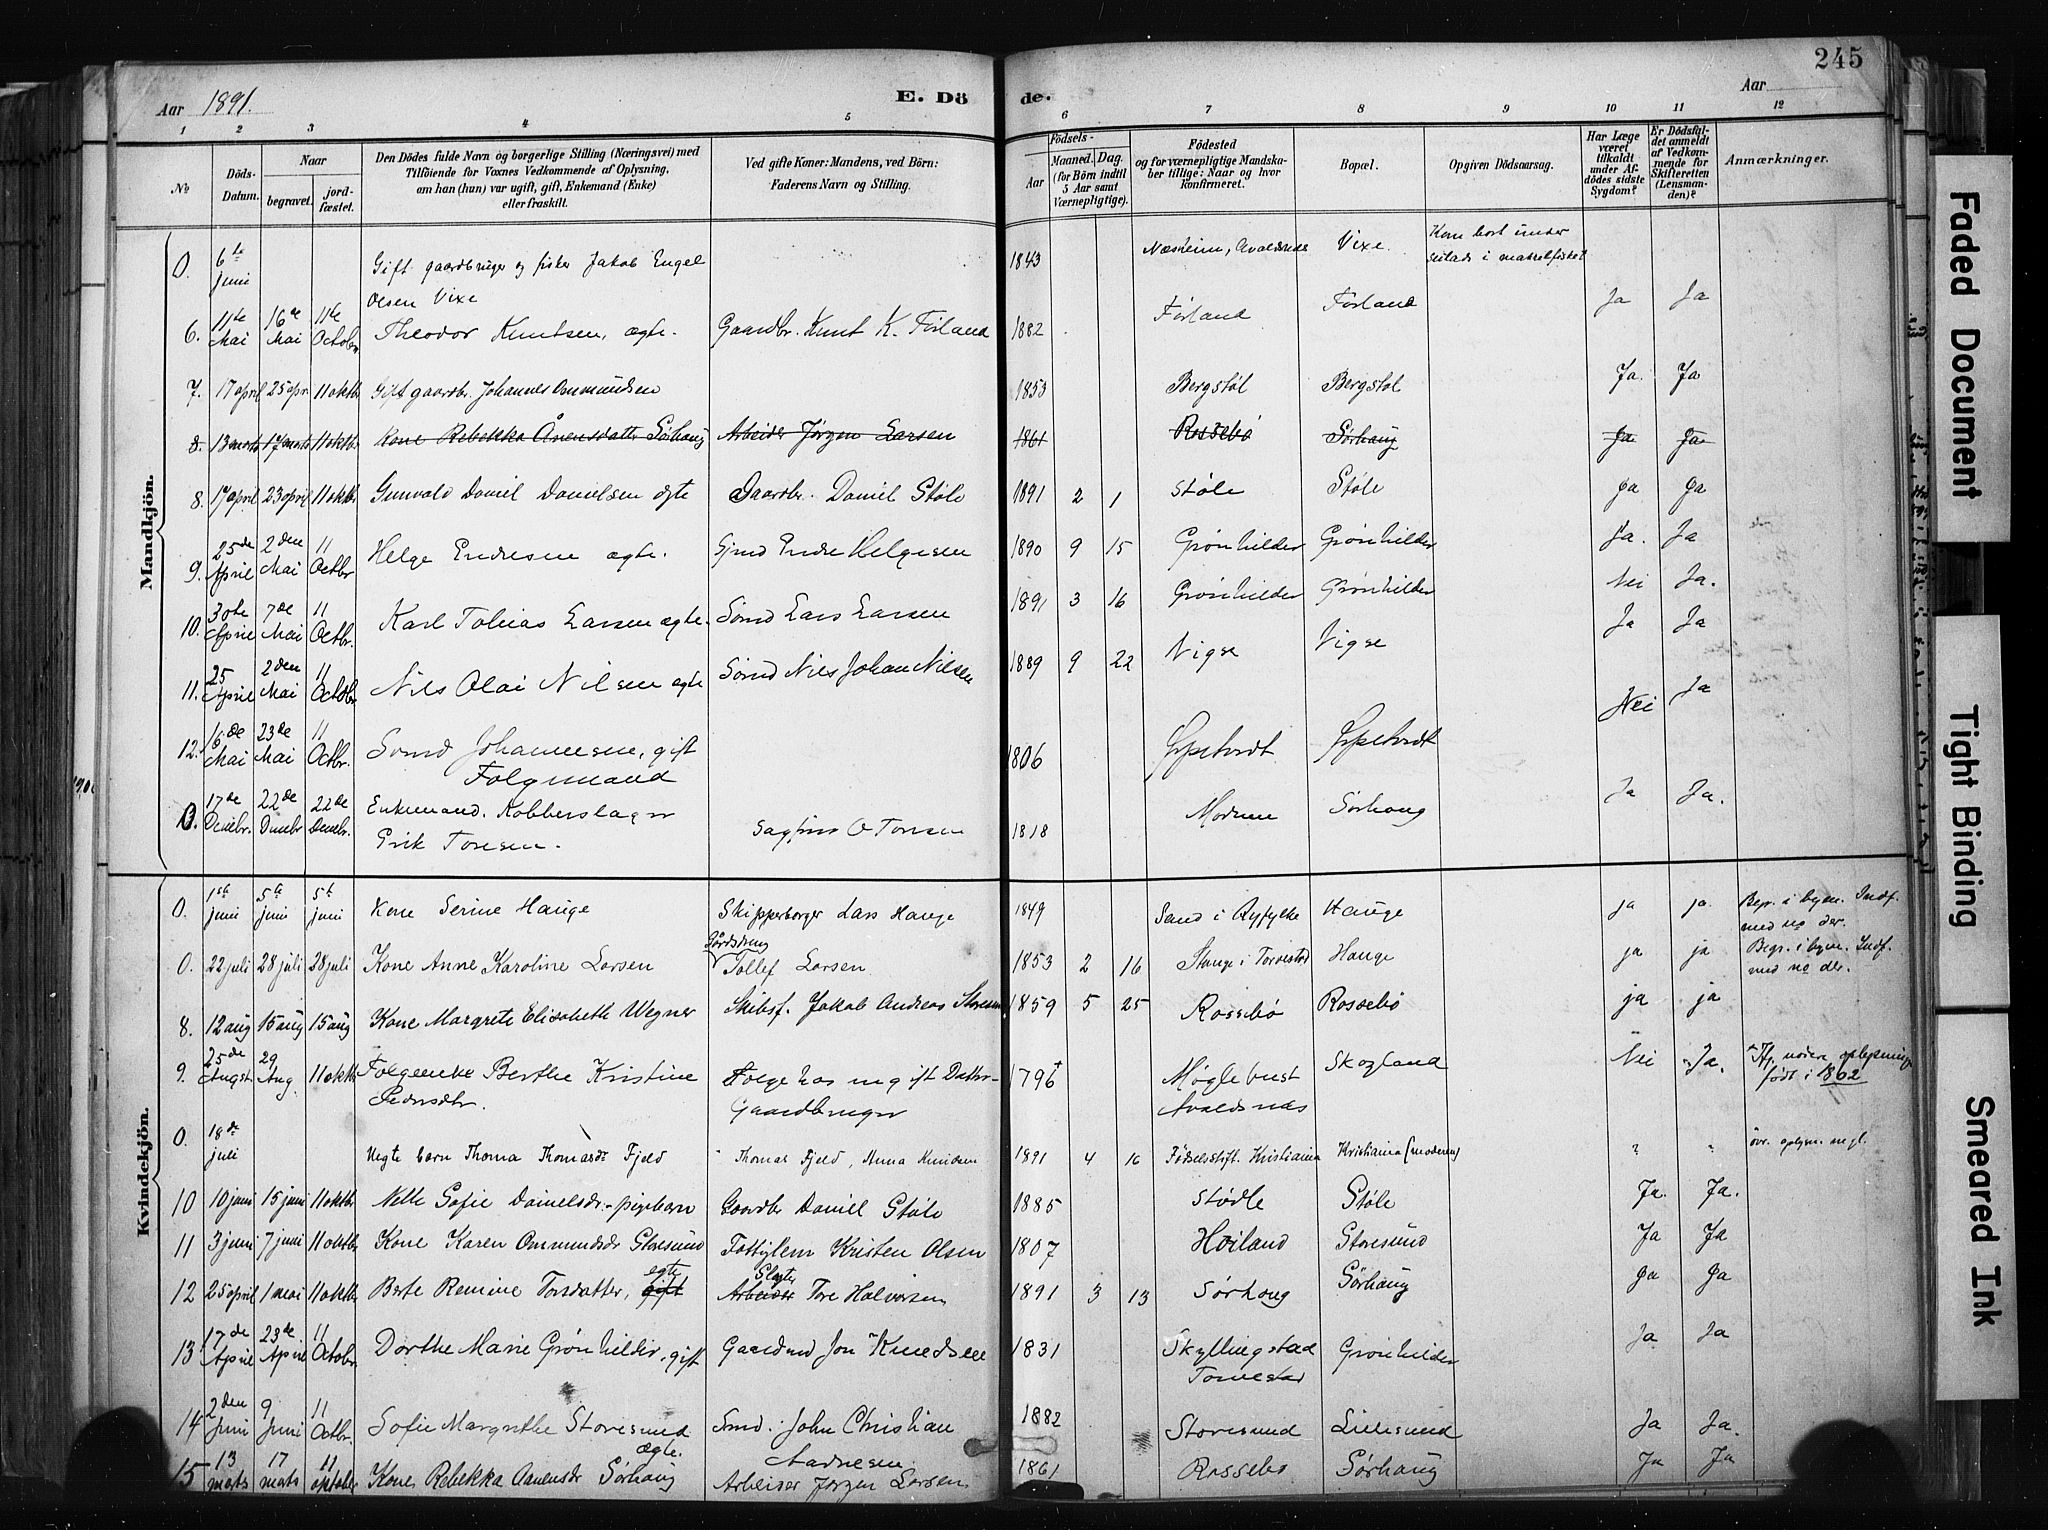 245
Aar 1891.
E. Dö
de.
Aar
1 2 3 4 5 6 7 8 9 10 11 12
No
Döds-Datum.
Naar
begravet.
jord-fæstet.
Den Dödes fulde Navn og borgerlige Stilling (Næringsvei) med
Tilföiende for Voxnes Vedkommende af Oplysning,
om han (hun) var ugift, gift, Enkemand (Enke)
eller fraskilt.
Ved gifte Koner: Mandens, ved Börn:
Faderens Navn og Stilling.
Födsels-
Aar
Maaned. Dag.
(for Börn indtil
5 Aar samt
Værnepligtige).
Födested
og for værnepligtige Mandska-
ber tillige: Naar og hvor
konfirmeret.
Bopæl.
Opgiven Dödsaarsag.
Har Læge
været
tilkaldt
under Af-
dödes sidste
Sygdom?
Er Dödsfal-
det anmeldt
af Vedkom-
mende for
Skifteretten
(Lensman-
den)?
Anmærkninger.
Mandkjön.
0. 6te juni Gift gaardbruger og fisker Jakob Engel Olsen Vixe 1843 Næsheim, Avaldsnes Vixe. Kom bort under seilads i makrelfisket
6. 11te Mai 16de Mai 11te Octobr Theodor Knutsen, ægte. Gaardbr. Knut K. Førland 1882 Førland Førland Ja Ja
7. 17 april 25 apr 11 oktbr Gift gaardbr. Johannes Ommundsen 1853 Bergstøl Bergstøl Ja. Ja
8. 13 marts 17 marts 11 oktbr. Kone Rebekka Ånensdatter Sørhaug Arbeider Jørgen Larsen 1861 Rossebø Sørhaug Ja Ja
8. 17 april 23 april 11 oktbr Gunvald Daniel Danielsen ægte Gaardbr. Daniel Støle 1891 2 1 Støle Støle Ja Ja
9. 25de April 2den Mai 11 Octbr Helge Endresen ægte. Gjmd Endre Helgesen 1890 9 15 Grønhilder Grønhilder Ja. Ja
10. 30te April 7de Mai 11 Octbr. Karl Tobias Larsen ægte. Sømd Lars Larsen 1891 3 16 Grønhilder Grønhilder Nei Ja.
11. 25 April 2den Mai 11 Octobr Nils Olai Nilsen ægte Sømd Niels Johan Nilsen 1889 9 22 Vigse Vigse Ja Ja
12. 16de Mai 23de Mai 11 Octbr. Sømd Johannesen, gift Folgemand 1806 Nei Ja
0. 17de Decmbr. 22de 22de Decmbr. Enkemand. Kobberslager Erik Toresen. 1818 Modum Sørhaug Ja Ja.
Kvindekjön.
0. 1ste juni 5te juni 5te juni Kone Serine Hauge Skipperborger Lars Hauge 1849 Sand i Ryfylke Hauge ja ja. Begr. i byen. Indf. med no der.
0. 22 juli 28 juli 28 juli Kone Anne Karoline Larsen Tollef Larsen 1853 2 16 Hauge i Torvestad Hauge ja ja Begr. i byen. Indf. med no der.
8. 12 aug 15 aug 15 aug Kone Margrete Elisabeth Wegner Skibsf. Jakob Andreas 1859 5 25 Rossebø Rossebø ja ja
9. 25de Augst 29 Aug. 11 oktbr Folgeenke Berthe Kristine Pedersdtr. 1796 + Møglebust Avaldsnæs Skogland Nei Ja. født i 1802
0. 18de juli Uegte barn Thoma Thomasdr Fjeld Thomas Fjeld, Anna Knudsen 1891 4 16 Fødselsstift. Kristiania Kristiania (moderen) " " øvr. oplysn. mgl.
10 10 juni 15 juni 11 oktbr Nelle Sofie Danielsdr. - pigebarn Gaardbr Daniel Støle 1885 Stødle Støle Ja. Ja.
11 3 juni 7 juni 11 oktbr Kone Karen Ommundsdr Storesund Fattiglem Kristen Olsen 1807 Høiland Storesund Ja Ja
12 25 april 1 mai 11 oktbr Berte Remine Torsdatter, gift egte Arbeider Slagter Tore Halvorsen 1891 3 13 Sørhaug Sørhaug Ja Ja
13 17de April 23de April 11 Octobr Dorthe Marie Grønhilder, gift Gaardmd Jon Knudsen 1831 Skyllingstad Torvestad Grønhilder Ja Ja
14 2den Juni 9 Juni 11 Octbr. Sofie Margrethe Storesund ægte. Smd. John Christian Aadnesen 1882 Storesund Lillesund Ja Ja.
15 13 marts 17 marts 11 oktober Kone Rebekka Aanensdr Sørhaug Arbeider Jørgen Larsen 1861 Rossebø Sørhaug Ja Ja
Faded Document
Tight Binding
Smeared Ink